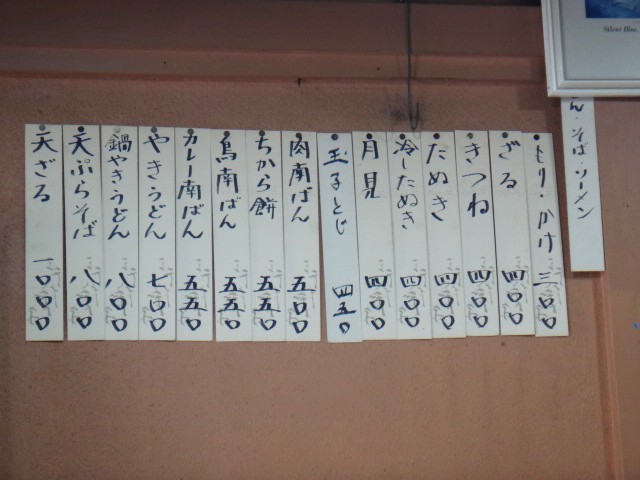 Silent Blue
ん・そば・ソーメン
もり・かけ 三〇〇
ざる 四〇〇
きつね 四〇〇
たぬき 四〇〇
冷したぬき 四〇〇
月見 四〇〇
玉子とじ 四五〇
肉南ばん 五〇〇
ちから餅 五五〇
鳥南ばん 五五〇
カレー南ばん 五五〇
やきうどん 七〇〇
鍋やきうどん 八〇〇
天ぷらそば 八〇〇
天ざる 一〇〇〇